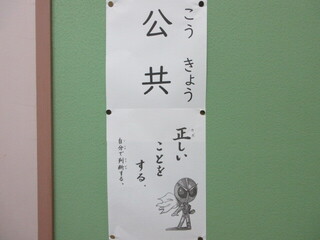 公共
こうきょう
正しい
ことを
する。
自分で判断する。